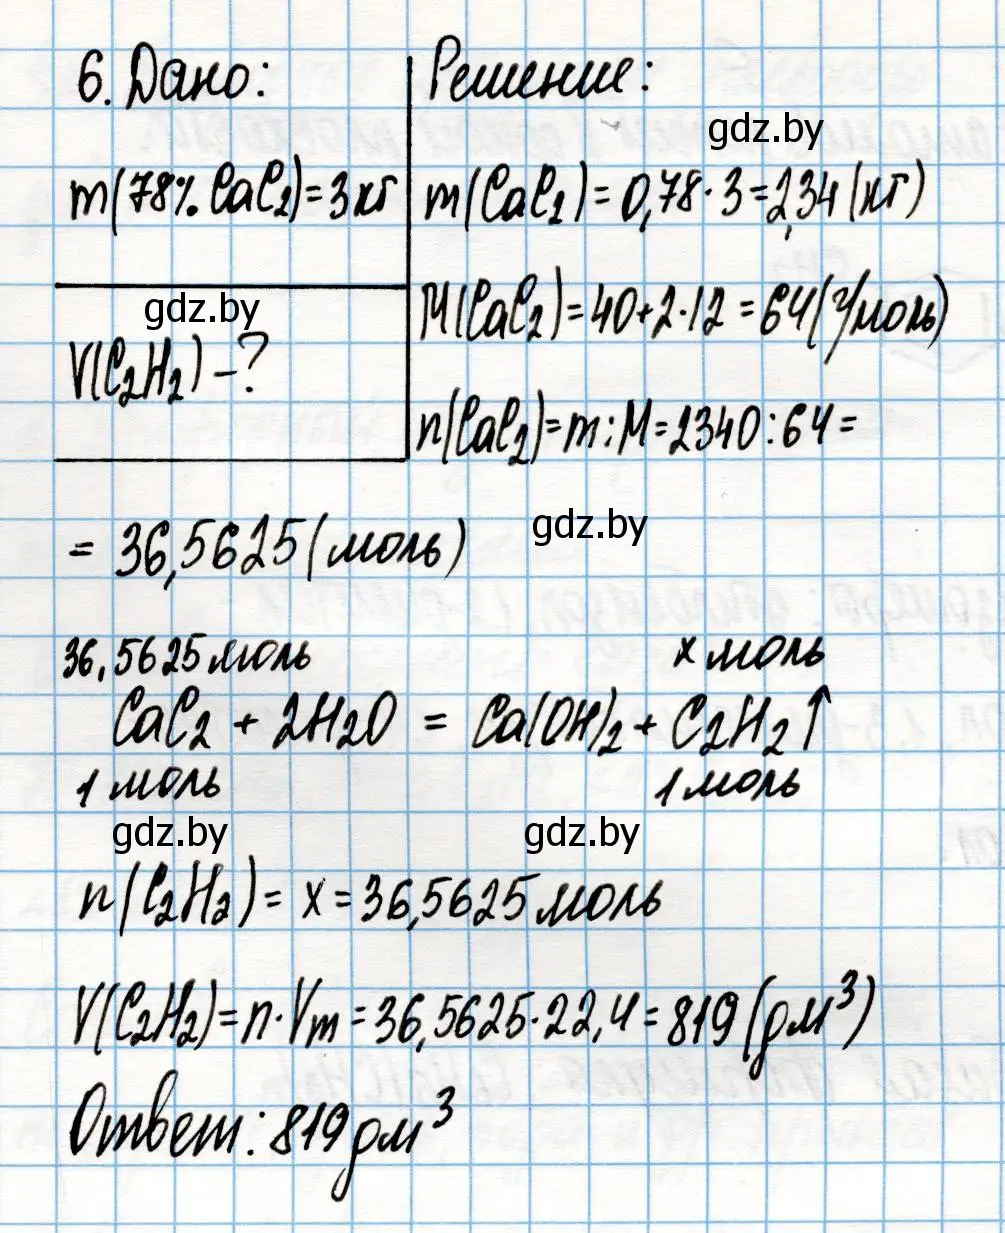 6. Дано:
m(78% CaC₂)=3 кг
V(C₂H₂) – ?
Решение:
gdz.by
m(CaC₂)=0,78·3=2,34 (кг)
gdz.by
M(CaC₂)=40+2·12=64(г/моль)
n(CaC₂)=m:M=2340:64=
gdz.by
= 36,5625 (моль)
36,5625 моль x моль
CaC₂ + 2H₂O = Ca(OH)₂ + C₂H₂↑
1 моль 1 моль
gdz.by gdz.by
n(C₂H₂)= x = 36,5625 моль
V(C₂H₂)=n·Vm=36,5625·22,4=819 (дм³)
Ответ: 819 дм³